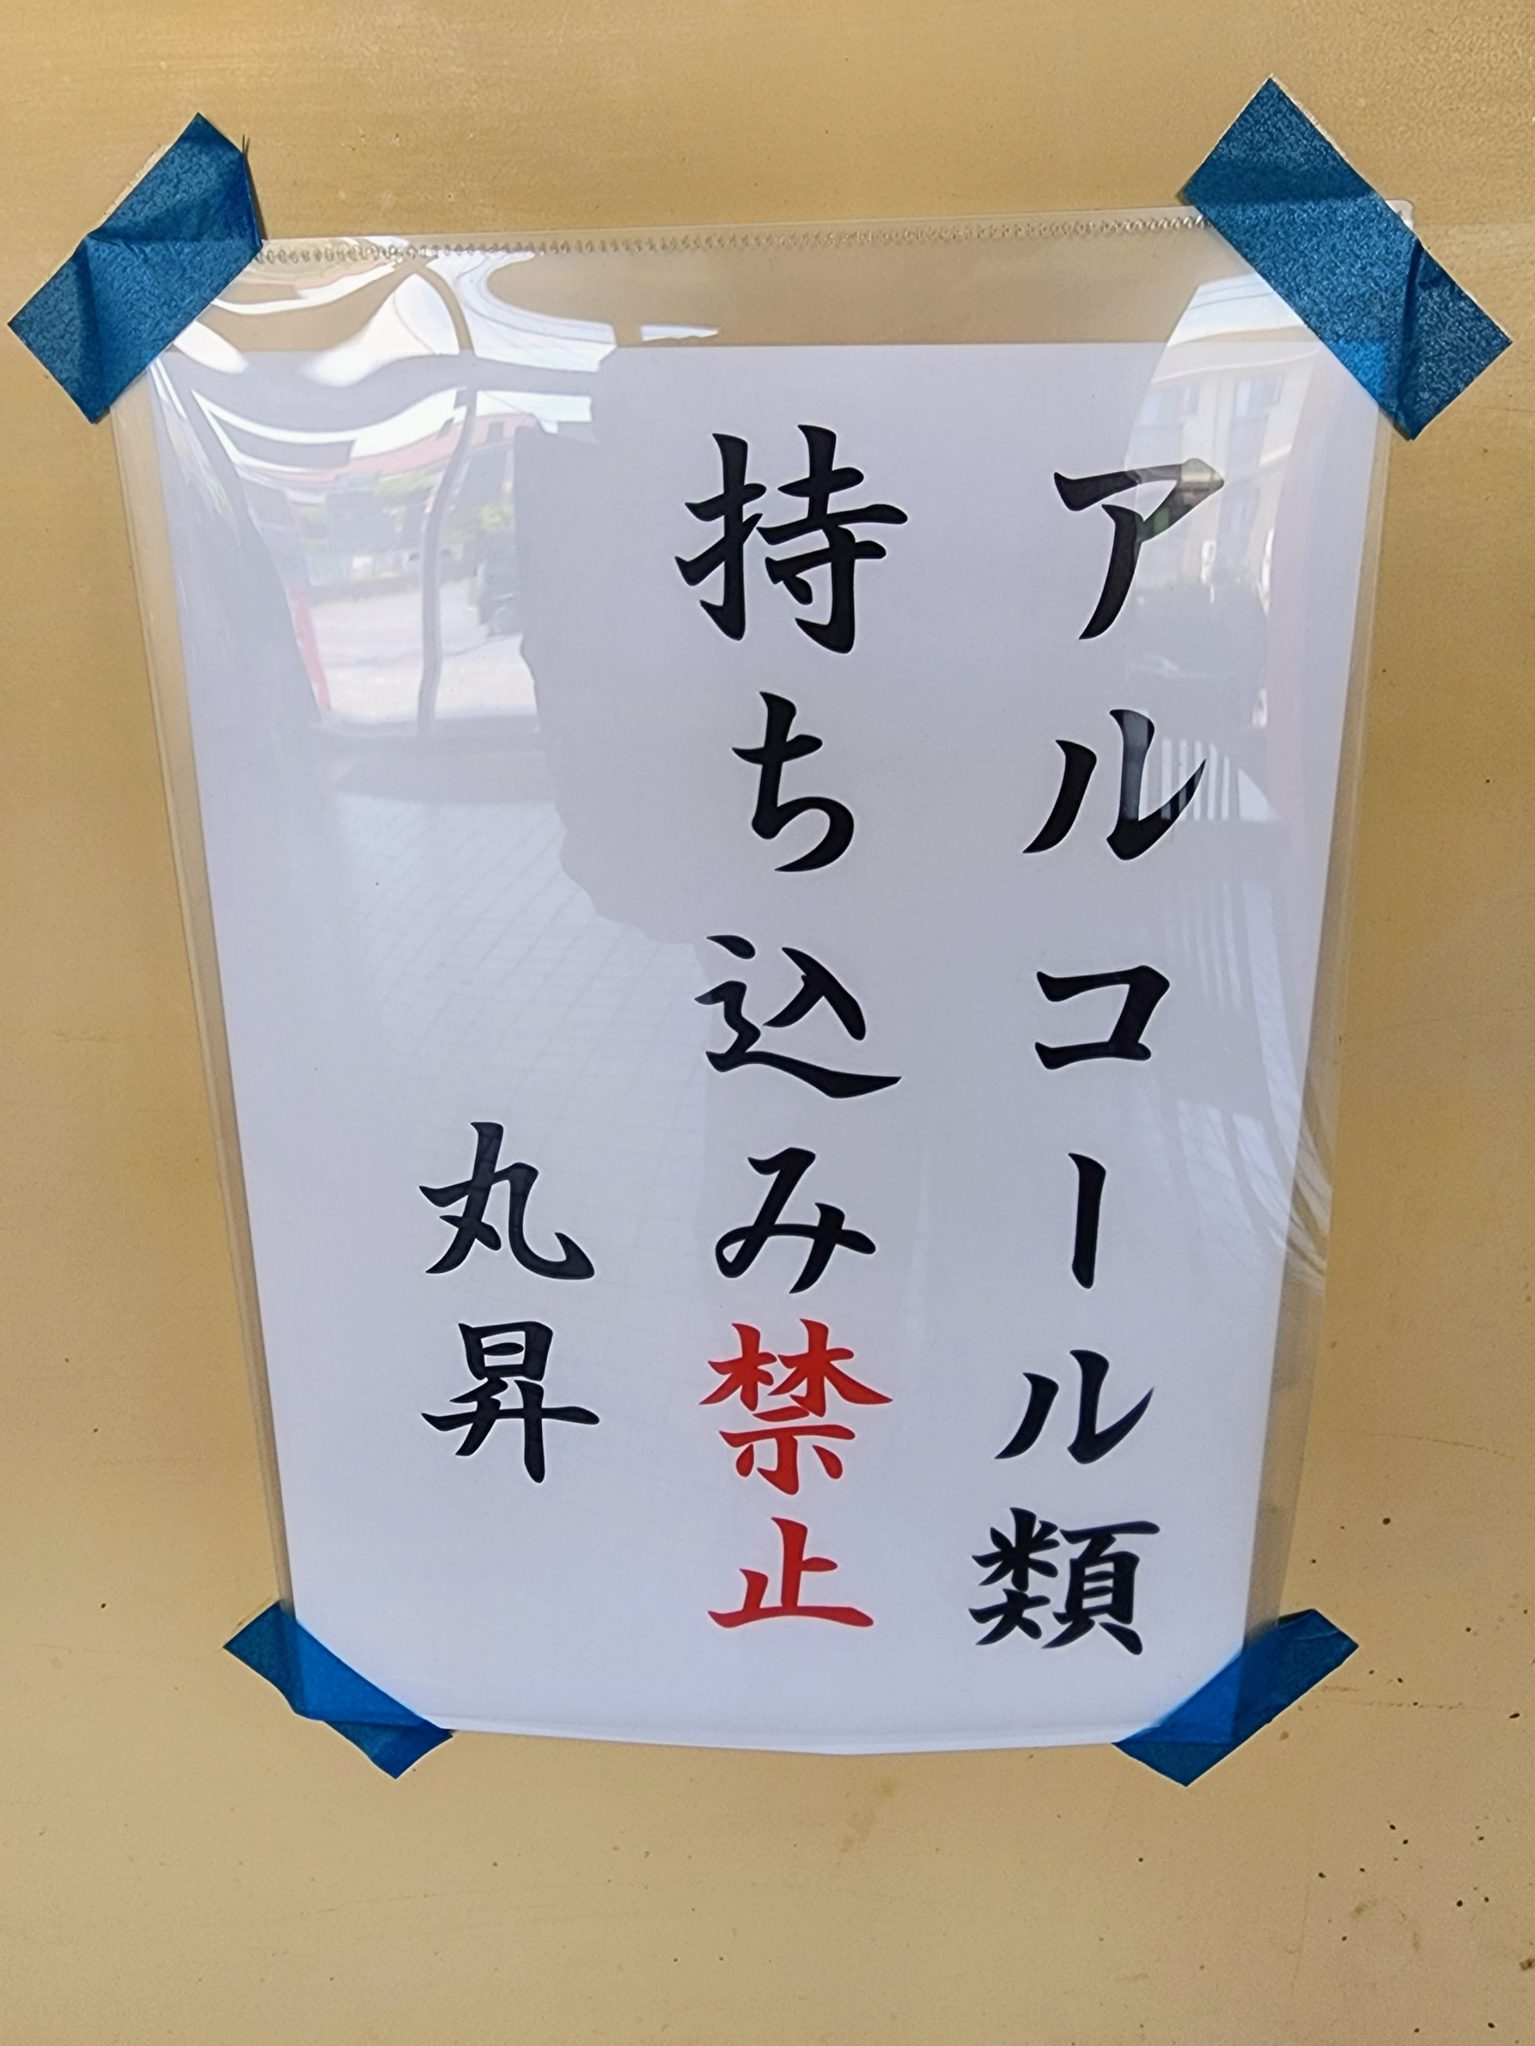 アルコール類
持ち込み禁止
丸昇